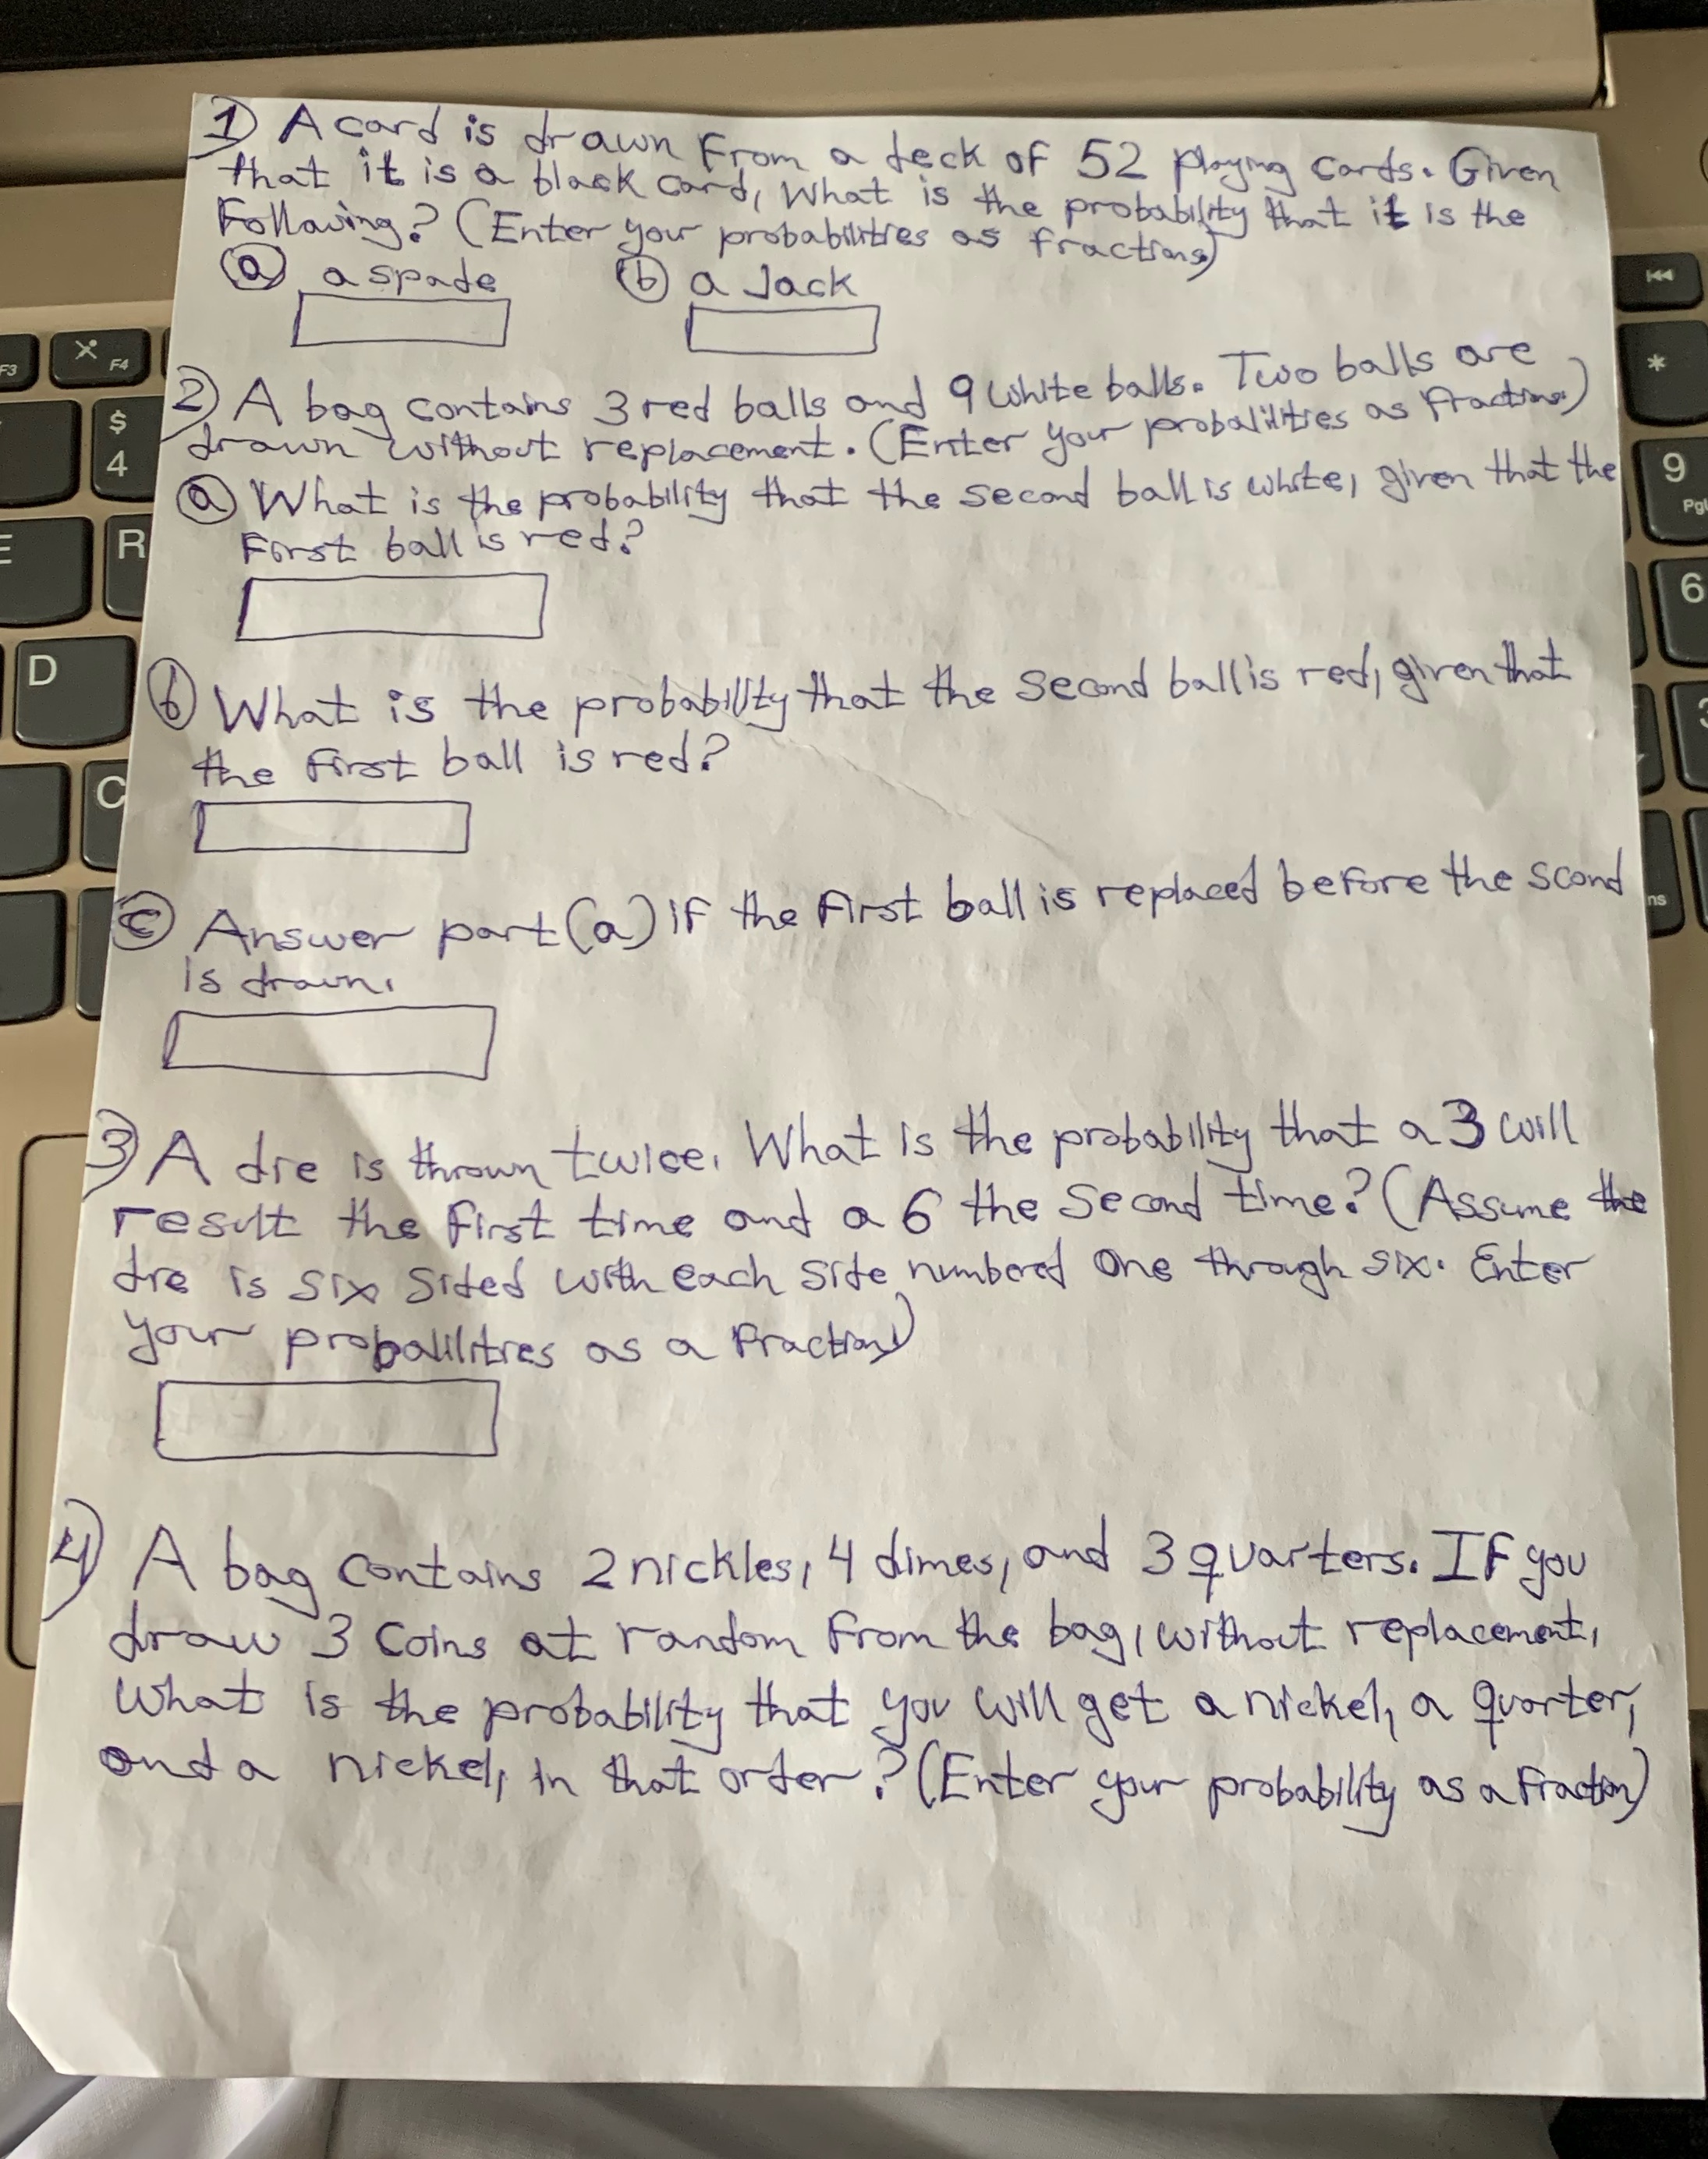 1) A card is drawn From a deck of 52 playing cards. Given
that it is a black card, What is the probability that it is the
Following? (Enter your probabilities as fractions)
a) a spade b) a Jack
2) A bag contains 3 red balls and 9 white balls. Two balls are
drawn without replacement. (Enter your probalilities as fractions)
a) What is the probability that the second ball is white, given that the
First ball is red?
b) What is the probability that the second ball is red, given that
the First ball is red?
c) Answer part (a) if the First ball is replaced before the scond
is drawn.
3) A die is thrown twice. What is the probability that a 3 will
result the first time and a 6 the Second time? (Assume the
die is six sided with each side numbered one through six. Enter
your probalilities as a fraction)
4) A bag contains 2 nickles, 4 dimes, and 3 quarters. If you
draw 3 coins at random from the bag, without replacement,
what is the probability that you will get a nickel, a quarter,
and a nickel, in that order? (Enter your probability as a fraction)
F3
F4
$
4
E
R
D
C
*
9
PgU
6
3
ns